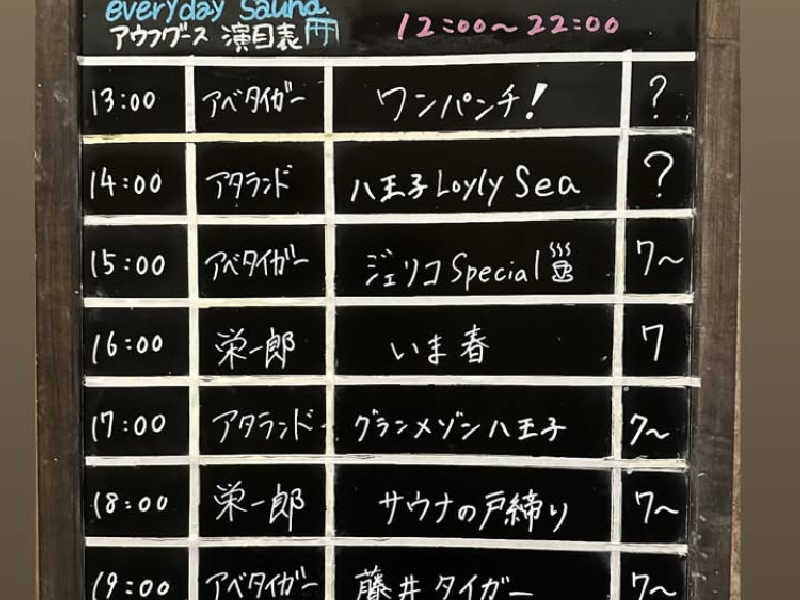 everyday sauna.
アウフグース 演目表 12:00〜22:00
13:00 アベタイガー ワンパンチ! ?
14:00 アタランド 八王子Loyly Sea ?
15:00 アベタイガー ジェリコSpecial 7〜
16:00 栄一郎 いま春 7
17:00 アタランド グランメゾン八王子 7〜
18:00 栄一郎 サウナの戸締り 7〜
19:00 アベタイガー 藤井タイガー 7〜